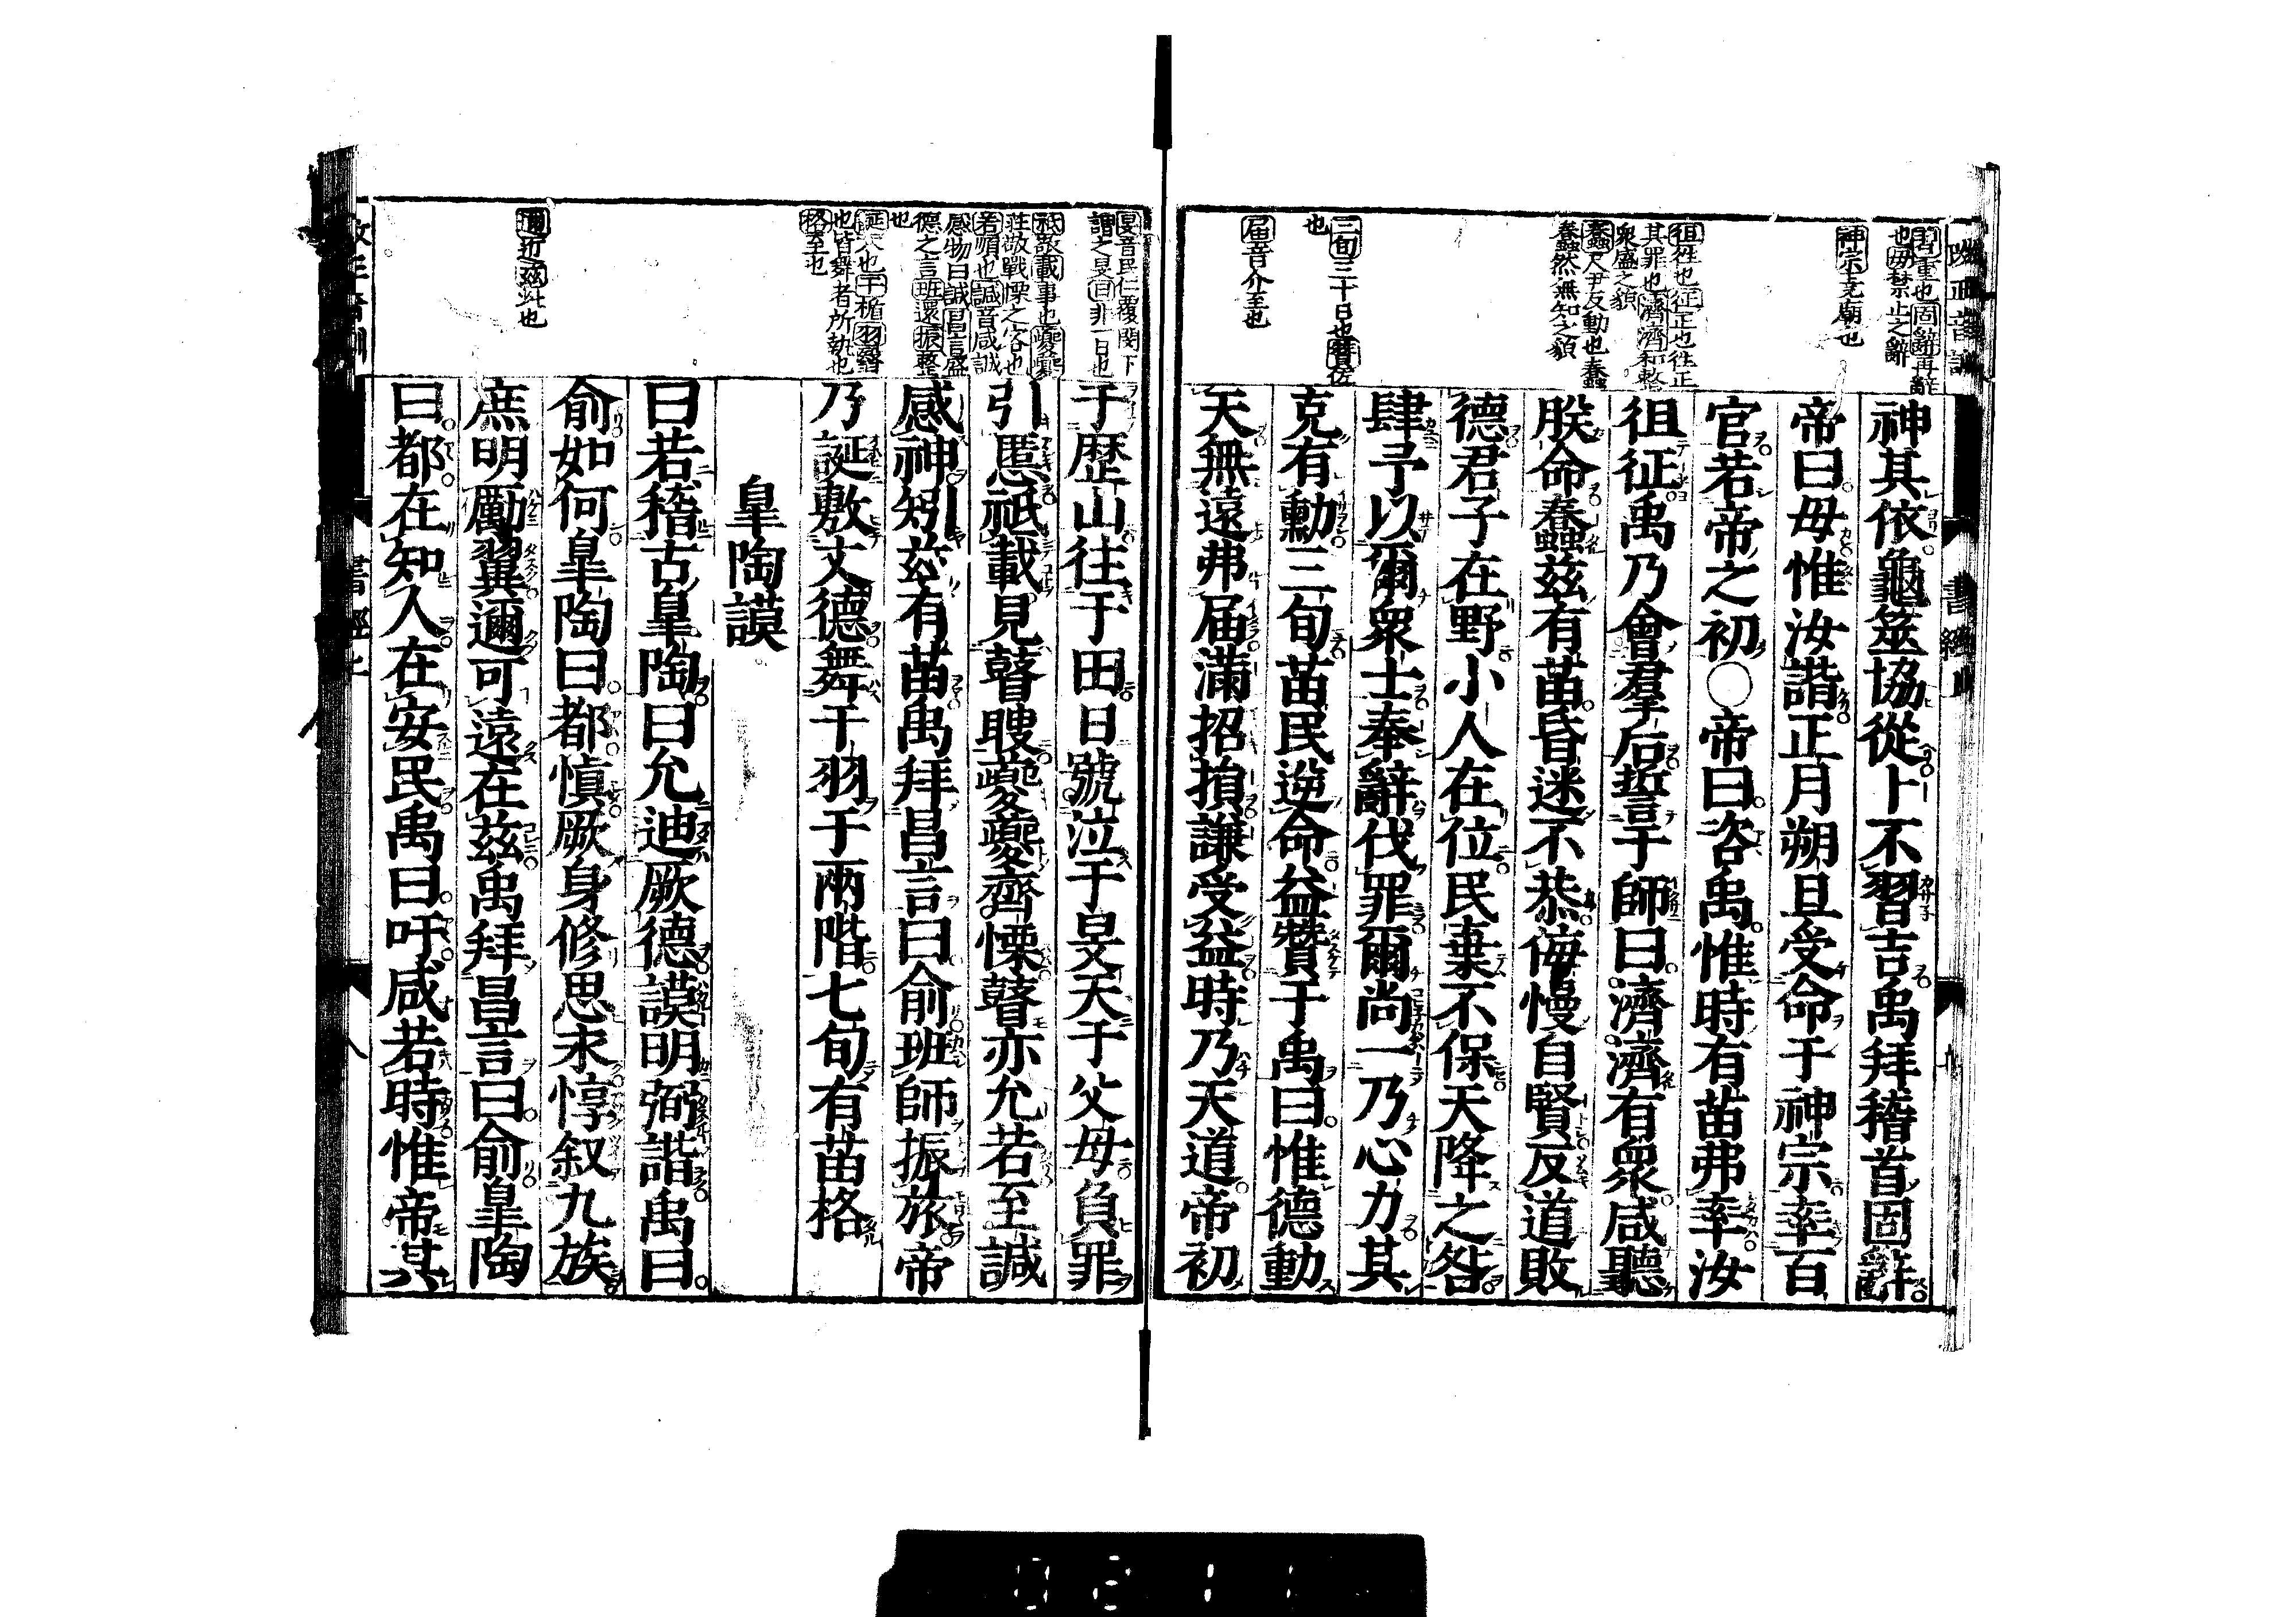 習重也固辭再辭
也毋禁止之辭
神宗堯廟也
徂往也征正也往正
其罪也濟濟和整
衆盛之貌
蠢尺尹反動也蠢
蠢然無知之貌
三旬三十日也贊佐
也
届音介至也
神其依龜筮協從卜不習吉禹拜稽首固辭
帝曰毋惟汝諧正月朔旦受命于神宗率百
官若帝之初○帝曰咨禹惟時有苗弗率汝
徂征禹乃會羣后誓于師曰濟濟有衆咸聽
朕命蠢茲有苗昏迷不恭侮慢自賢反道敗
德君子在野小人在位民棄不保天降之咎
肆予以爾衆士奉辭伐罪爾尚一乃心力其
克有勳三旬苗民逆命益贊于禹曰惟德動
天無遠弗届滿招損謙受益時乃天道帝初
旻音民仁覆閔下
謂之旻日非一日也
祗敬載事也夔夔
莊敬戰慄之容也
若順也諴音咸誠
感物曰諴昌言盛
德之言班還振整
也
誕大也干楯羽翳
也皆舞者所執也
格至也
邇近也茲此也
于歷山往于田日號泣于旻天于父母負罪
引慝祗載見瞽瞍夔夔齊慄瞽亦允若至諴
感神矧茲有苗禹拜昌言曰俞班師振旅帝
乃誕敷文德舞干羽于兩階七旬有苗格
皐陶謨
曰若稽古皐陶曰允迪厥德謨明弼諧禹曰
俞如何皐陶曰都慎厥身修思永惇叙九族
庶明勵翼邇可遠在茲禹拜昌言曰俞皐陶
曰都在知人在安民禹曰吁咸若時惟帝其
書經上